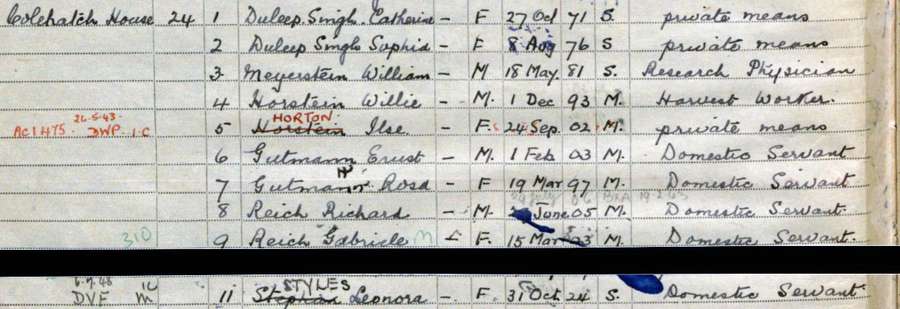 Colehatch House 24 1 Duleep Singh Catherine – F 27 Oct 71 S. private means
2 Duleep Singh Sophia – F 8 Aug 76 S private means
3 Meyerstein William – M 18 May. 81 S. Research Physician
4 Horstein Willie – M. 1 Dec 93 M. Harvest Worker.
26-5-43 HORTON
AC1475 DWP 1.C 5 Horstein Ilse – F. 24 Sep. 02 M. private means
6 Gutmann Ernst – M. 1 Feb 03 M. Domestic Servant
7 Gutmann Rosa – F 19 Mar 97 M. Domestic Servant
8 Reich Richard – M. June 05 M. Domestic Servant
310 9 Reich Gabriele – F. 15 Mar M. Domestic Servant.
STYLES
DVF M 11 Stephan Leonora – F. 31 Oct 24 S. Domestic Servant